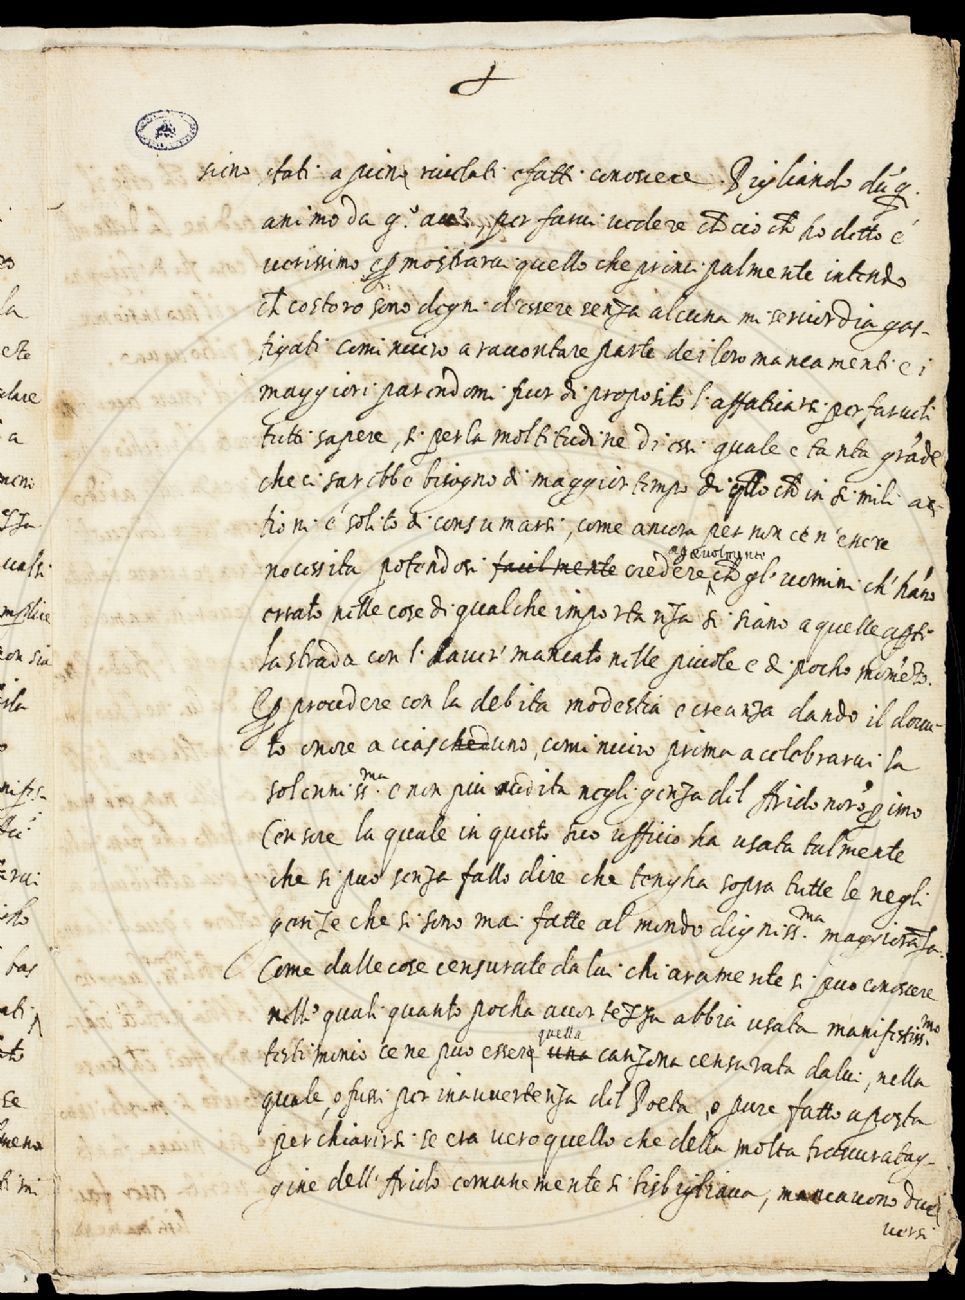 sieno stati a pieno rivelati e fatti conoscere. Pigliando dūq.
animo da q.o per farvi vedere cħ ciò cħ ho detto é
verissimo et mostrarvi quello che princi palmente intendo
cħ costoro sono degni d'essere senza alcuna misericordia gas-
tigati comincierò a raccontare parte dei loro mancamenti e i
maggiori parendomi fuor di proposito l'affaticarsi per farveli
tutti sapere, si per la moltitudine di essi quale e tanta grāde
che ci sarebbe bisogno di maggior tempo di qllo cħ in simili at-
tioni é solito di consumarsi, come ancora per non ce n'essere
necessita potendosi facilmente credere agevolmente cħ gl'uomini ch' hāno
errato nelle cose di qualche importanza si siano a quelle
la strada con l'haver mancato nelle picciole e di pocho momēto.
Et procedere con la debita modestia e creanza dando il dovu-
to onore a ciascheduno, comincierò prima a celebrarvi la
solenniss.ma e non piu udita negligenza del Arido nr̄o
Censore la quale in questo suo uffitio ha usata talmente
che si puo senza fallo dire che tengha sopra tutte le negli
genze che si sono mai fatte al mondo digniss.ma maggiorāza.
Come dalle cose censurate da lui chiaramente si puo conoscere
nelle quali quanto pocha accortezza abbia usata manifestiss.mo
testimonio ce ne puo essere una quella canzona censurata da lui, nella
quale, o fussi per inavvertenza del Poeta, o pure fatto a posta
per chiarirsi se era vero quello che della molta trascuratag-
gine dell'Arido comunemente si bisbigliava, mancavono due
versi